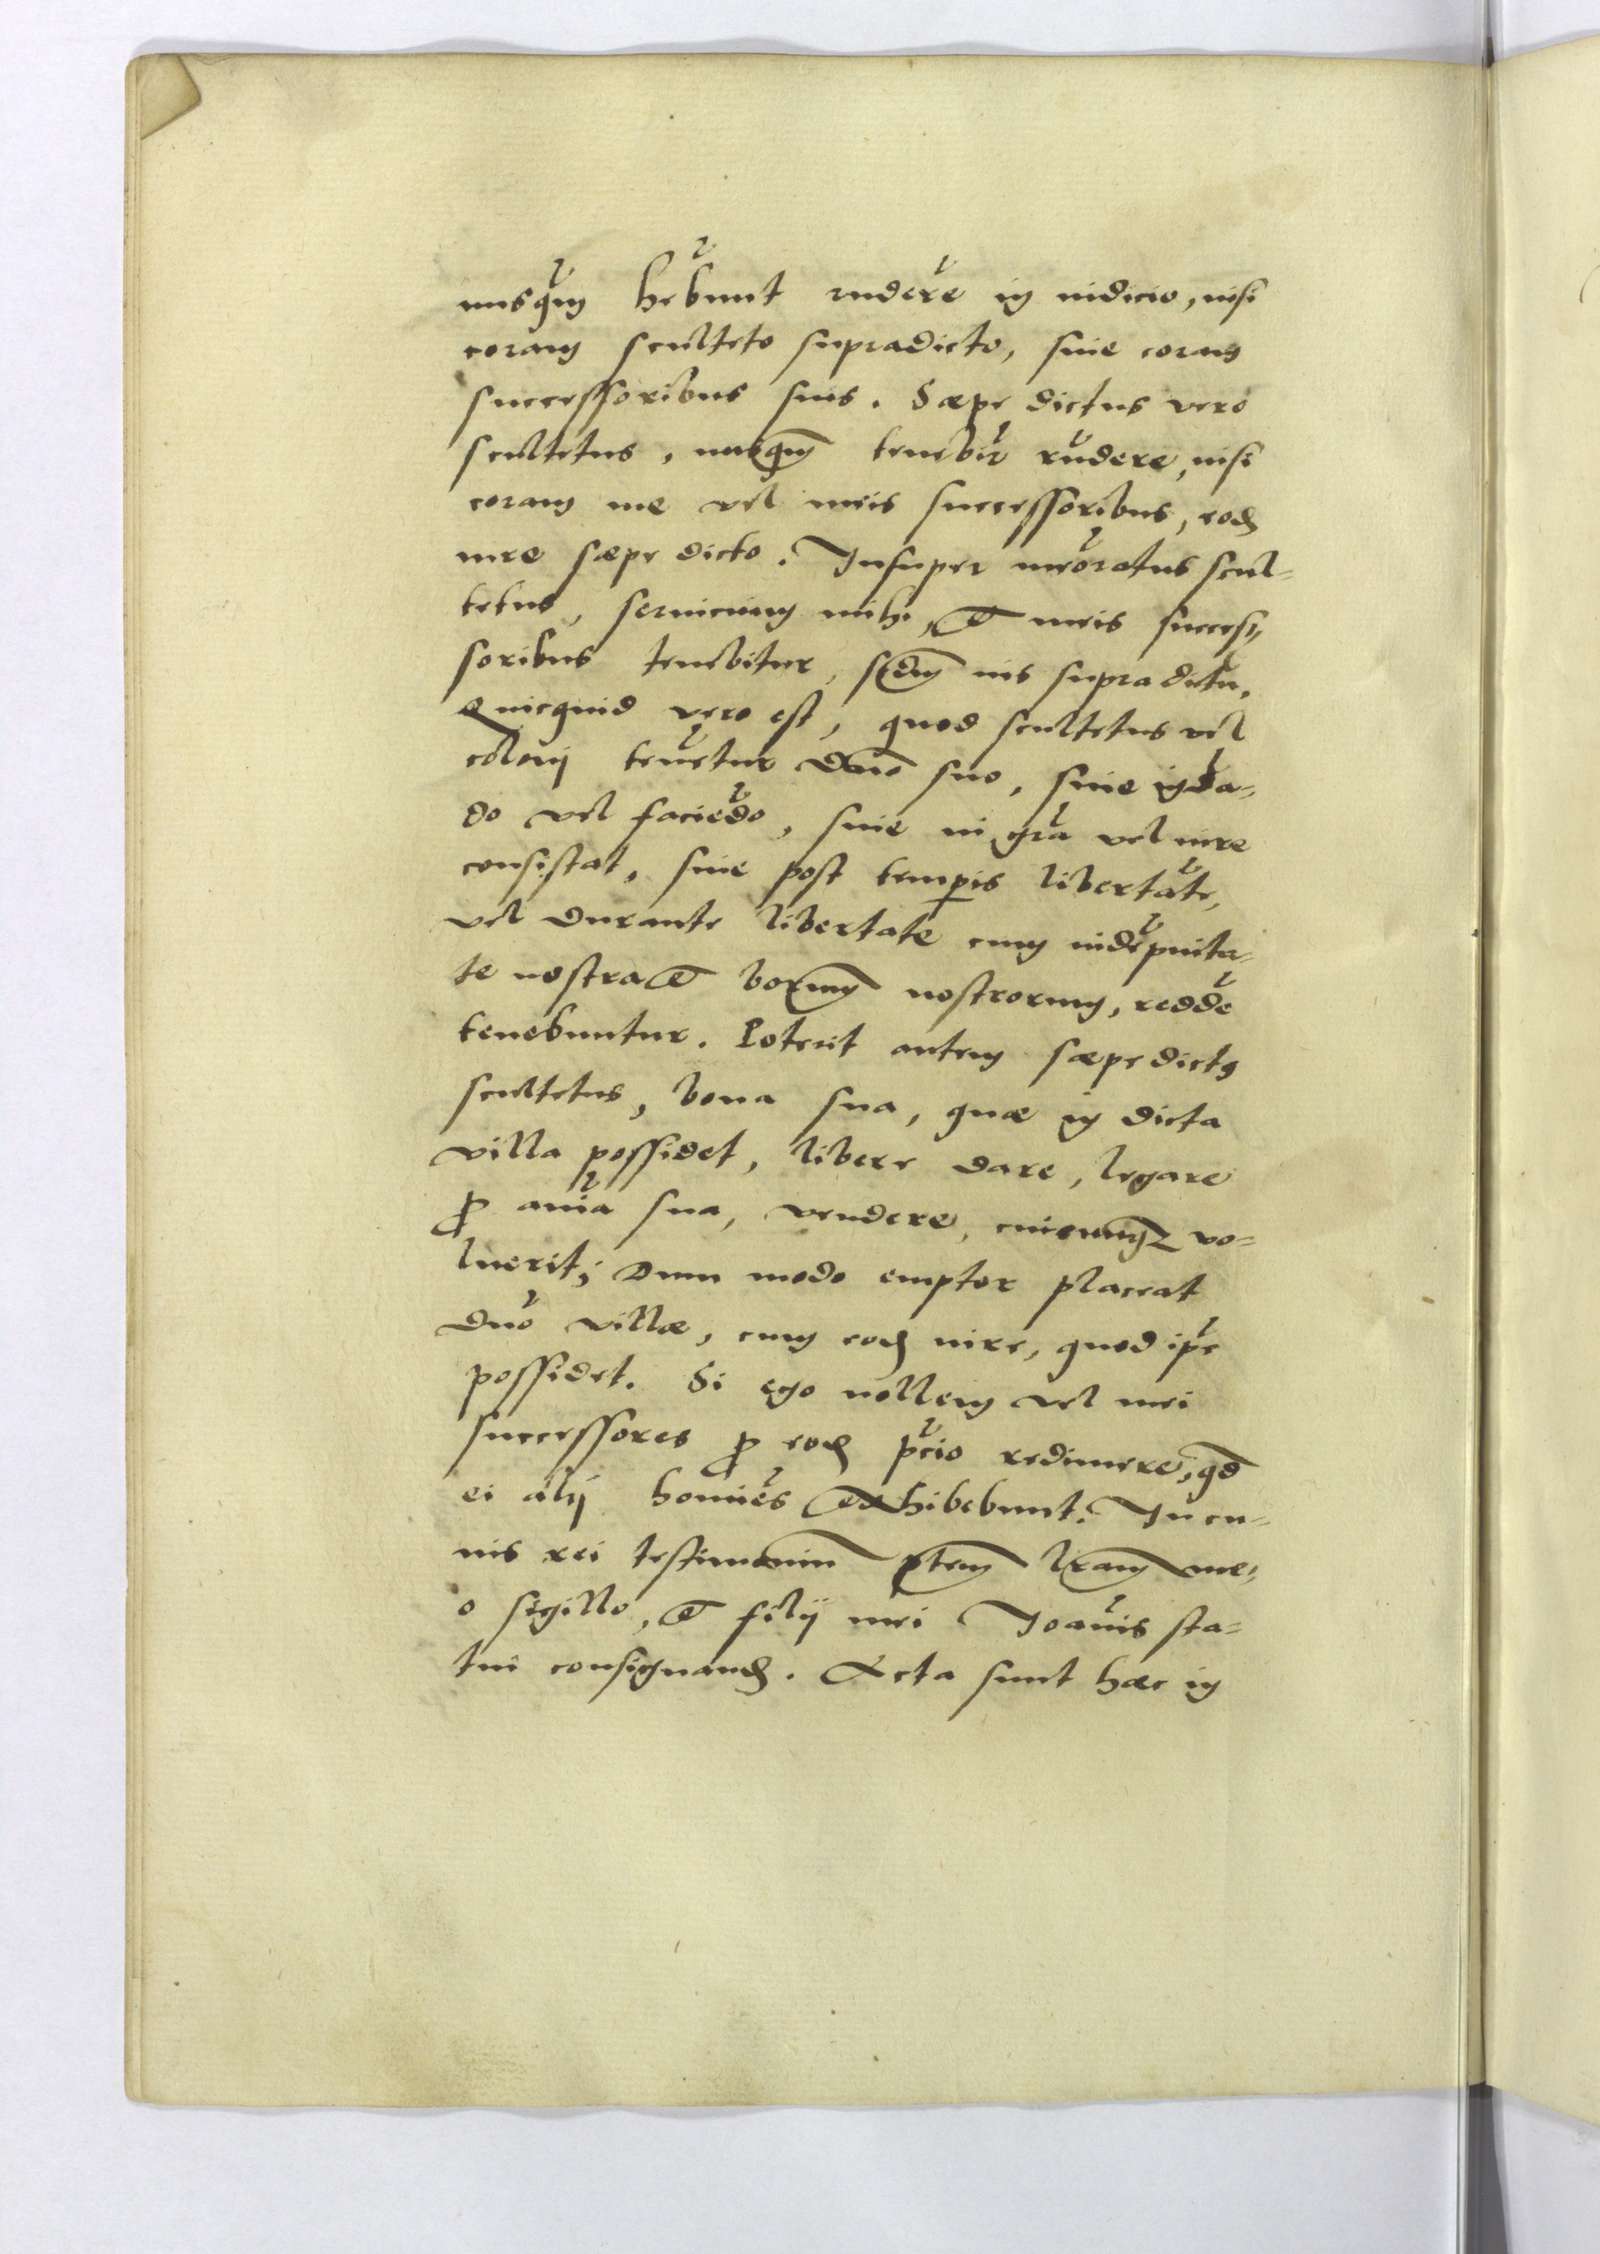 nusq̃m hẽbunt rñdere in iudicio, nisi
coram sculteto supradicto, siue coram
successoribus suis. Sæpe dictus vero
scultetus, nusq̃m tenebĩr rñdere, nisi
coram me vel meis successoribus, eod
iure sæpe dicto. Insuper meõratus scul-
tetus, seruicium mihi, & meis succes-
soribus tenebitur, scdm ius supradictũ,
Quicquid vero est, quod scultetus vel
colonij tenẽtur Dno suo, siue in dã-
do vel faciẽdo, siue in grã vel iure
consistat, siue post temp̱is libertatẽ,
vel durante libertate cum indẽpnita-
te nostra & borum nostrorum, reddẽ
tenebuntur. Poterit autem sæpe dictꝯ
scultetus, bona sua, quæ in dicta
villa possidet, libere dare, legare
ꝓ aĩa sua, vendere, cuicunqꝫ vo-
luerit; Dum modo emptor placeat
Dño villæ, cum eod iure, quod ip̃e
possidet. Si ego nollem vel mei
successores ꝓ eod p̃cio redimere, qd̃
ei alij homiẽs exhibebunt. In cu-
ius rei testimonium p̃tem lr̃am me-
o sigillo, & filij mei Joãnis sta-
tui consignand. Acta sunt hæc in